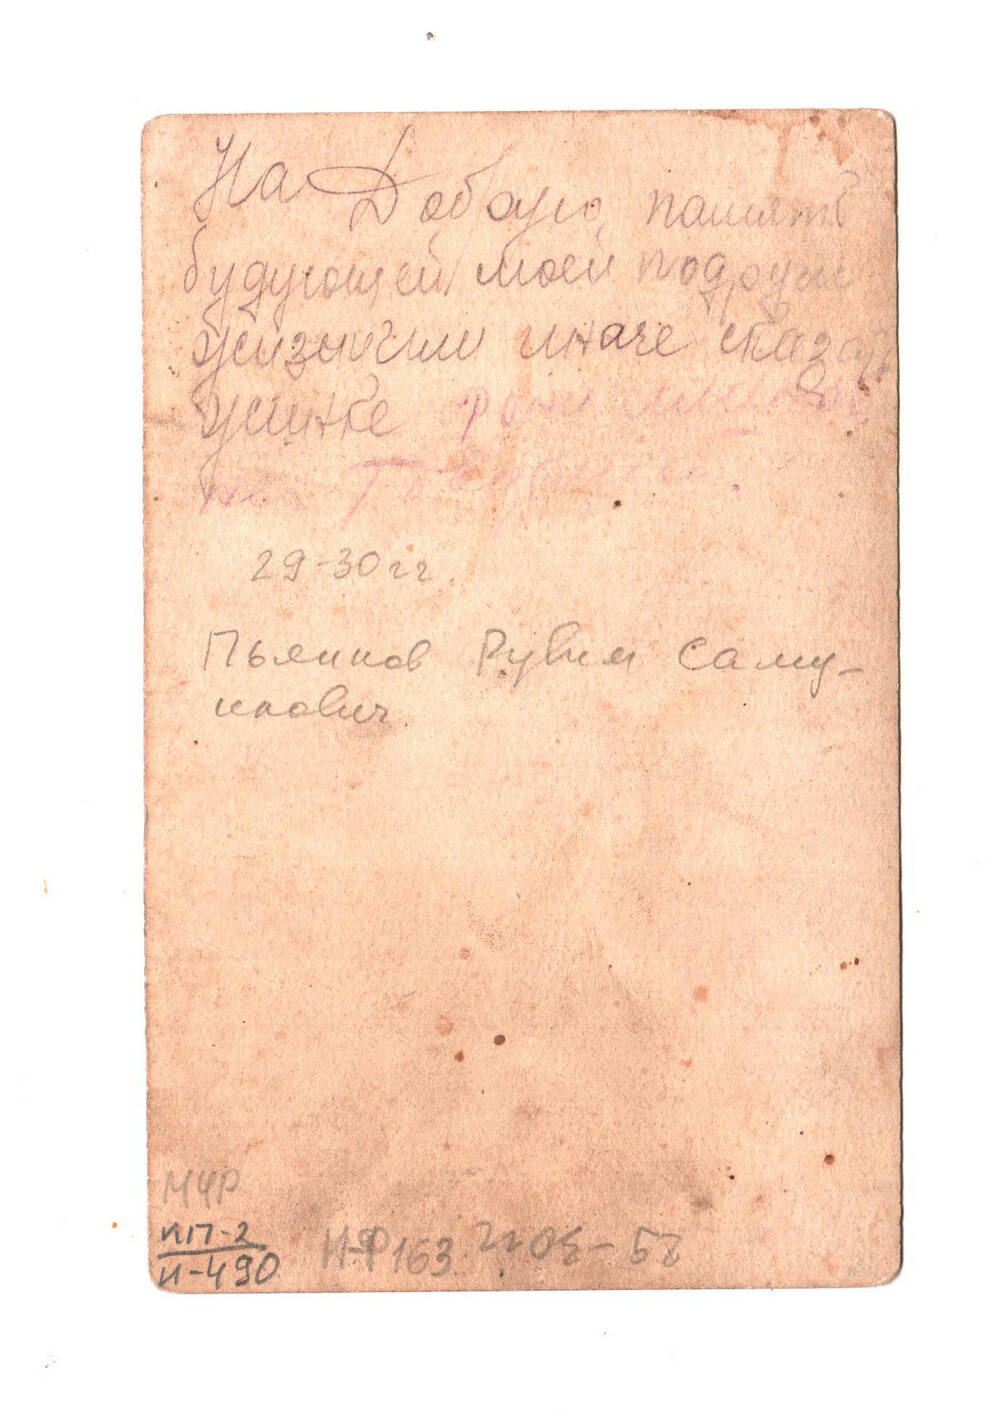 На Добрую память
будующей моей подруги
жизни или иначе сказать
жинке
на
29-30 гг.
Пьянков Рувим Саму-
илович.
МЧР
КП-2
И-490
Н-Ф 163